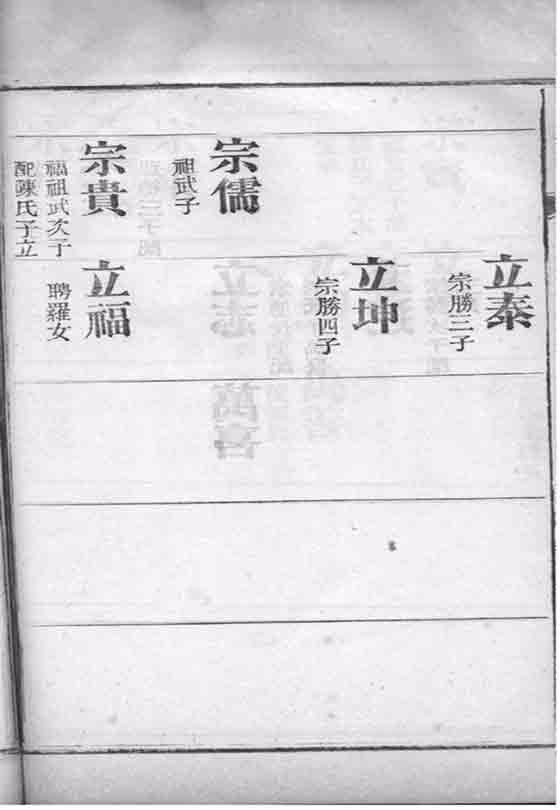 立泰
宗勝三子
立坤
宗勝四子
宗儒
祖武子
宗貴
福祖武次子
配陳氏子立
立福
聘羅女